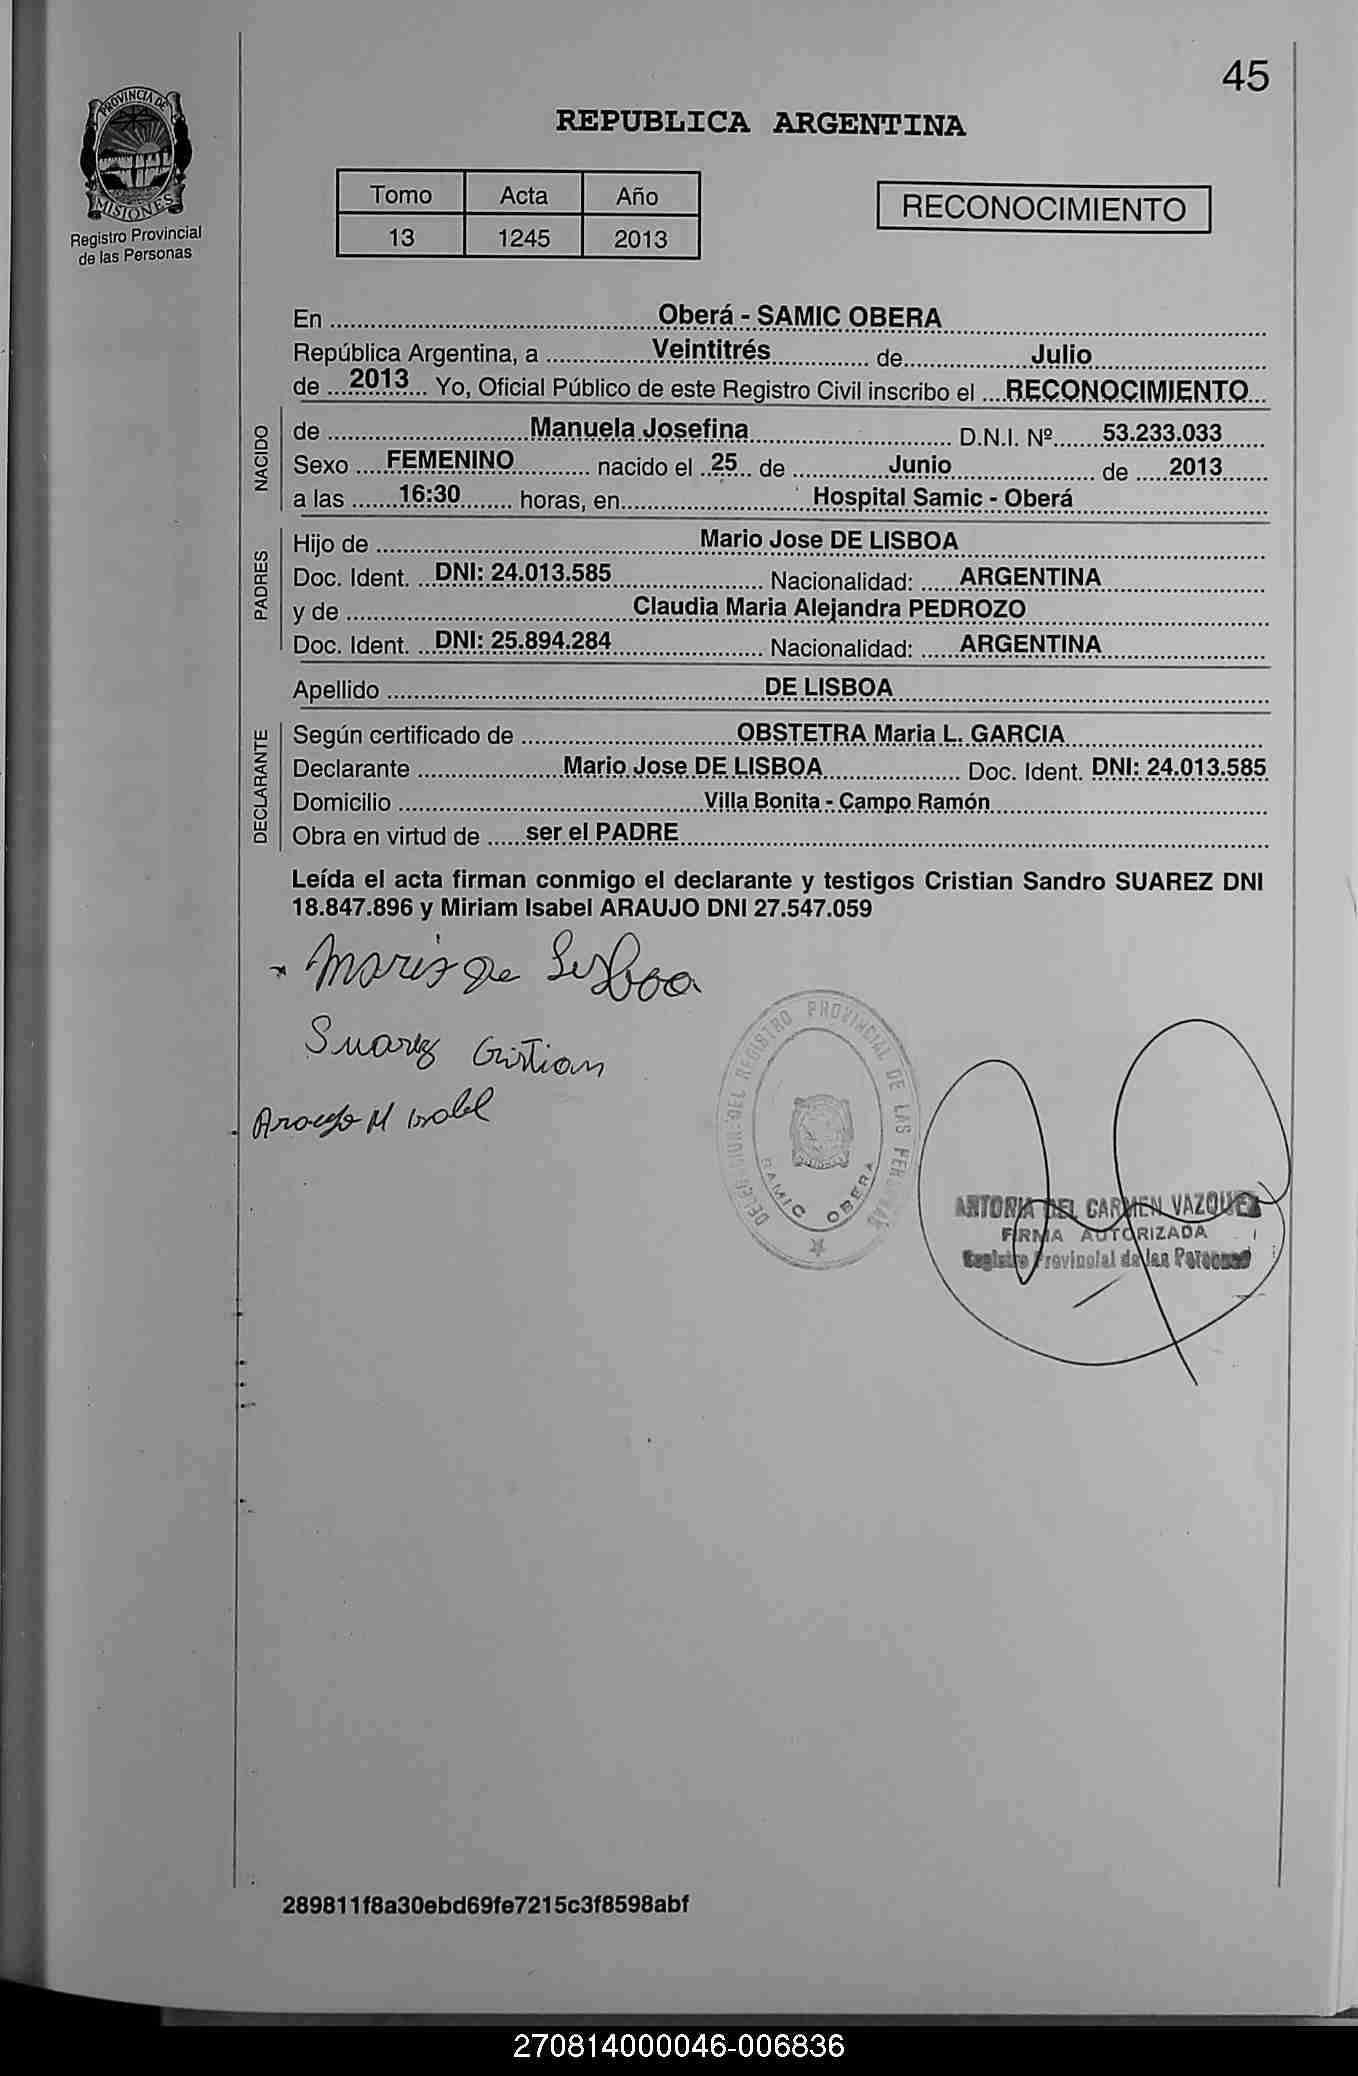 45
PROVINCIA DE
MISIONES
Registro Provincial
de las Personas
REPUBLICA ARGENTINA
Tomo Acta Año
13 1245 2013
RECONOCIMIENTO
En Oberá - SAMIC OBERA
República Argentina, a Veintitrés de Julio
de 2013 Yo, Oficial Público de este Registro Civil inscribo el RECONOCIMIENTO
NACIDO
de Manuela Josefina D.N.I. Nº 53.233.033
Sexo FEMENINO nacido el 25 de Junio de 2013
a las 16:30 horas, en Hospital Samic - Oberá
PADRES
Hijo de Mario Jose DE LISBOA
Doc. Ident. DNI: 24.013.585 Nacionalidad: ARGENTINA
y de Claudia Maria Alejandra PEDROZO
Doc. Ident. DNI: 25.894.284 Nacionalidad: ARGENTINA
Apellido DE LISBOA
DECLARANTE
Según certificado de OBSTETRA Maria L. GARCIA
Declarante Mario Jose DE LISBOA Doc. Ident. DNI: 24.013.585
Domicilio Villa Bonita - Campo Ramón
Obra en virtud de ser el PADRE
Leída el acta firman conmigo el declarante y testigos Cristian Sandro SUAREZ DNI
18.847.896 y Miriam Isabel ARAUJO DNI 27.547.059
Mario De Lisboa
Suarez Cristian
Araujo M Isabel
DELEGACION DEL REGISTRO PROVINCIAL DE LAS PERSONAS
SAMIC OBERA
ANTONIA DEL CARMEN VAZQUEZ
FIRMA AUTORIZADA
Registro Provincial de las Personas
289811f8a30ebd69fe7215c3f8598abf
270814000046-006836